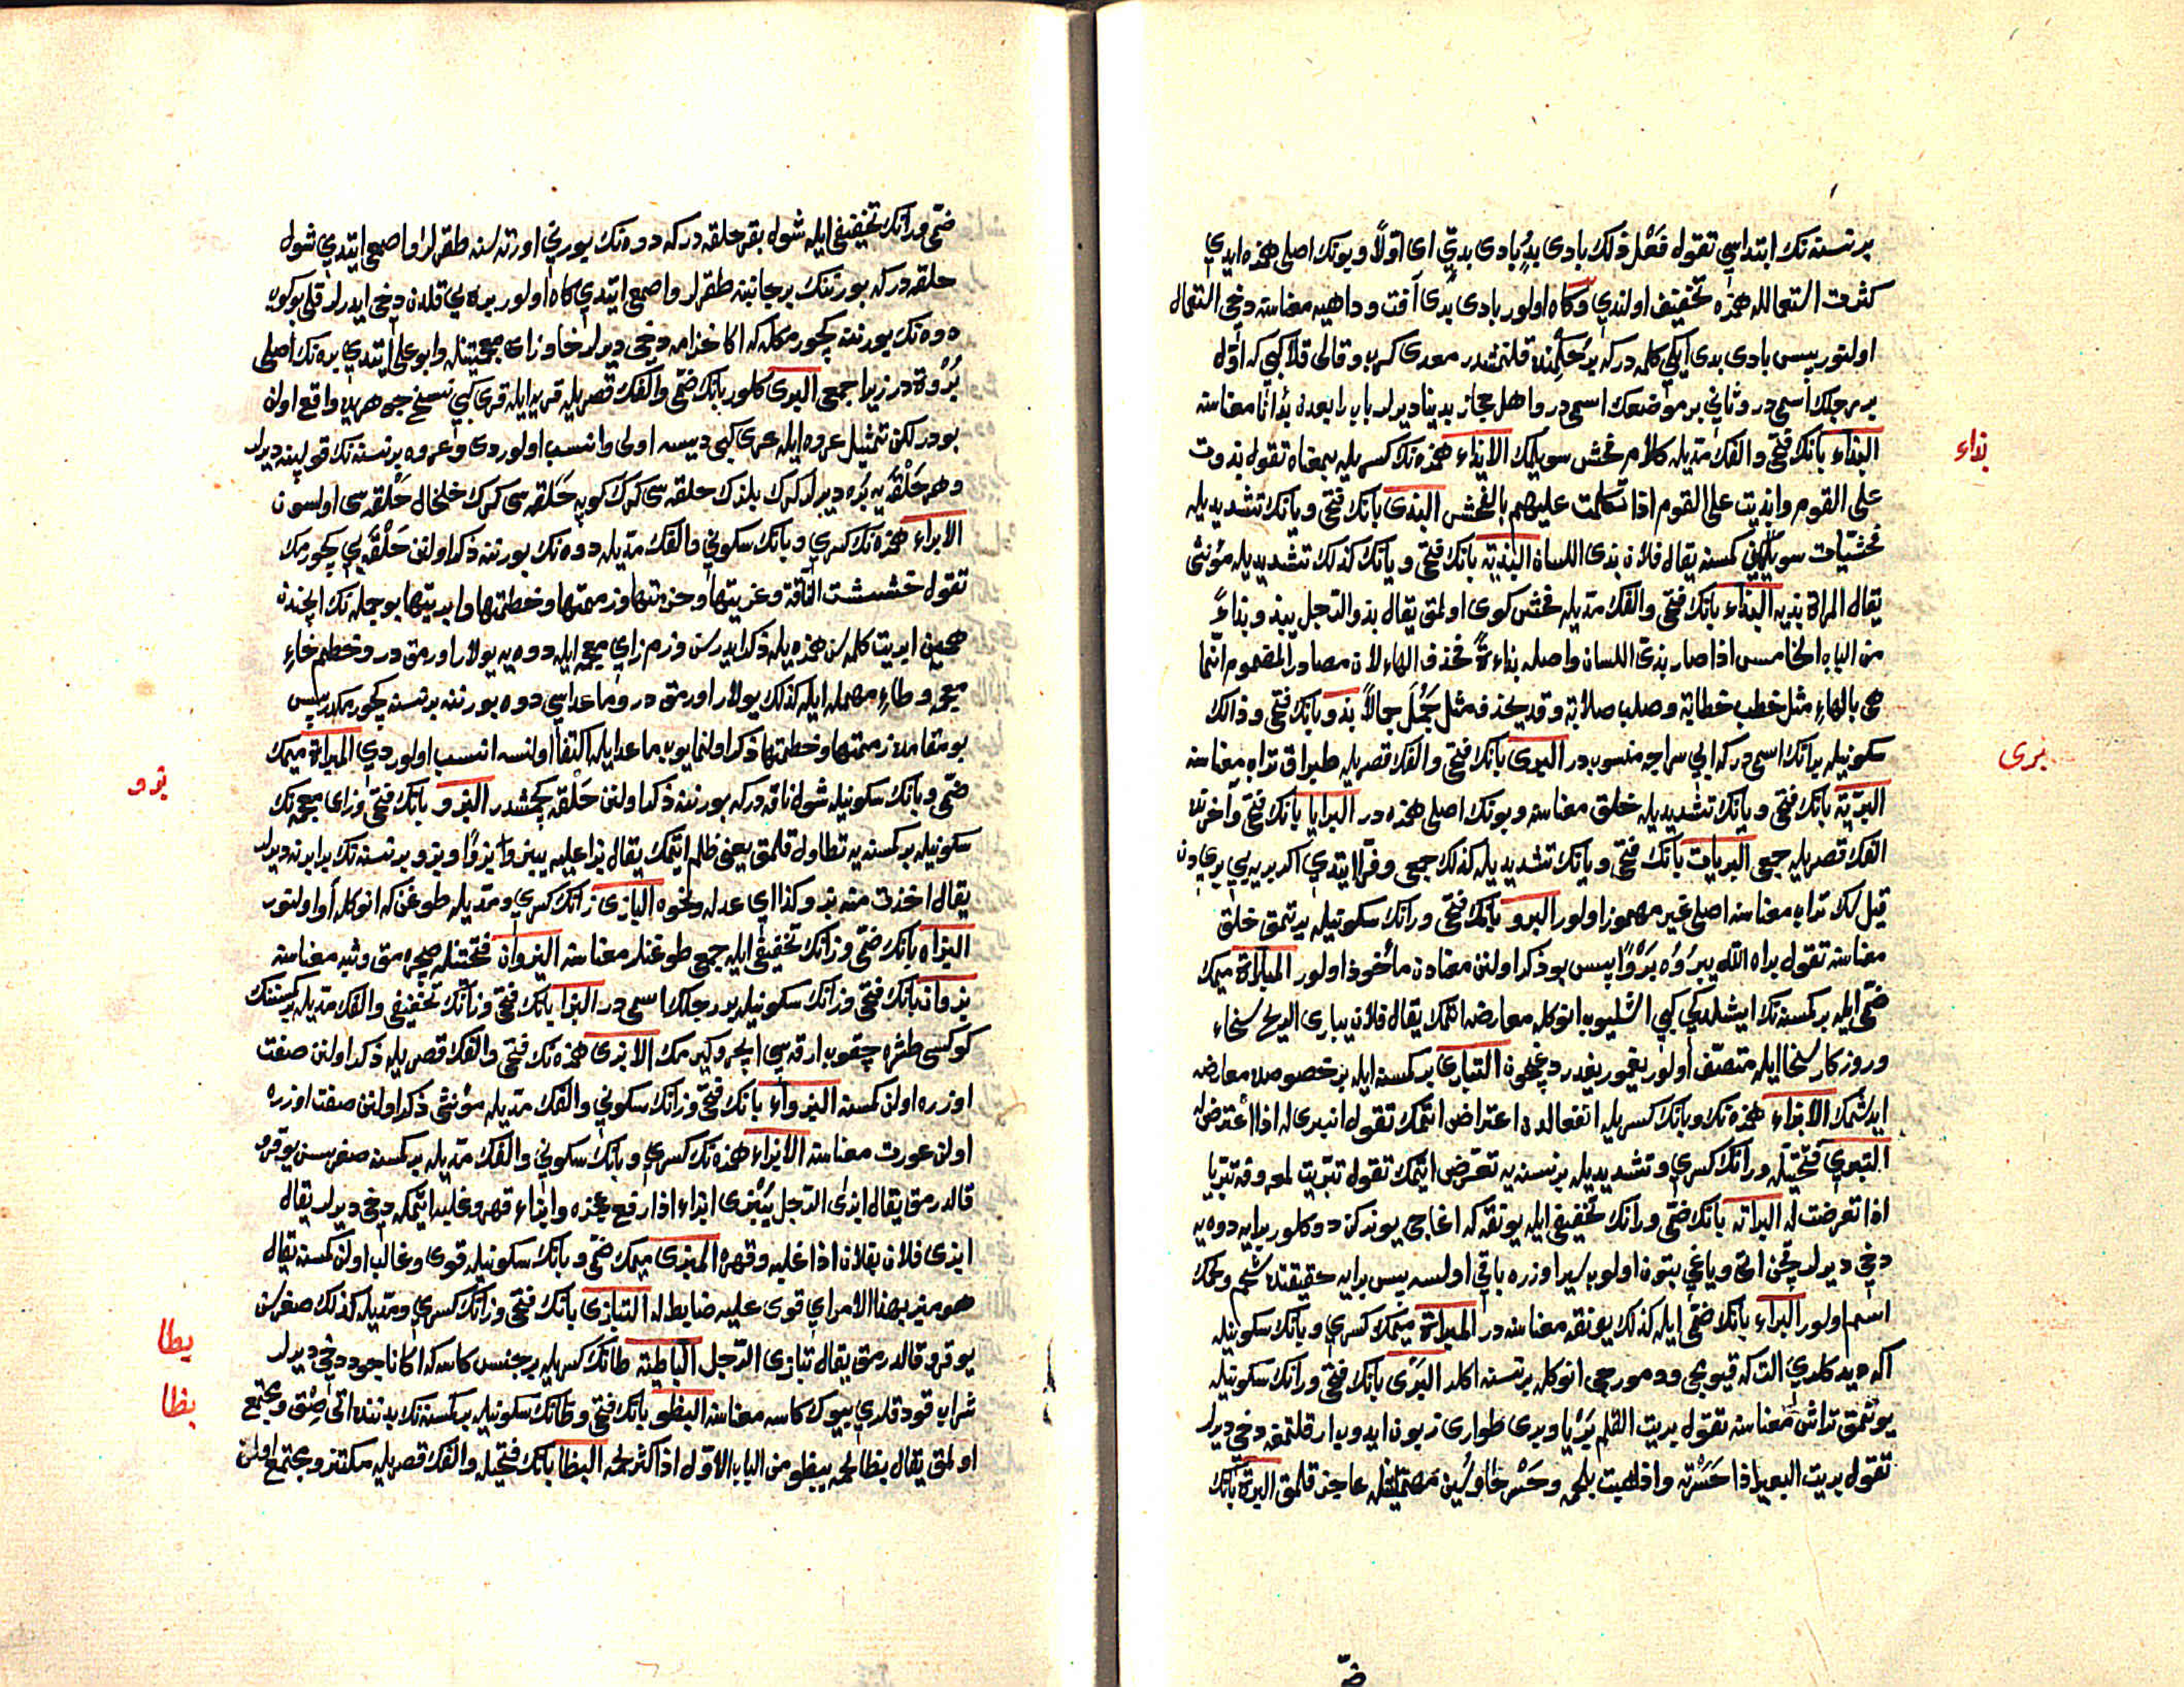 برنسنه نك ابتداسي تقول فَعْل ذلك بادى بدٍ بادى بديّ اى اوّلاً وبونك اصلى همزه ايدي
كثرت استعمالله همزه تخفيف اولندي وكاه اولور بادى بدى آفت وداهيه معناسنه دخي استعمال
اولنور پس بادى بدى ايكي كلمه در كه بر حكمنده قلنمشدر معدى كرب وقالى قلا كبي كه اوّل
بر رجلك اسمى در وثاني بر موضعك اسمى در واهل حجاز بدينا ديرلر بابرا بعدن بدأنا معناسنه
بذاء
البذاء بانك فتحى والفك مدّيله كلام فحش سويلمك الابذاء همزه نك كسريله بمعناه تقول بذوت
على القوم وابذيت على القوم اذا تكلمت عليهم بالفحش البذى بانك فتحى ويانك تشديديله
فحشيات سويليجي كمسنه يقال فلان بذى اللسان البذية بانك فتحى ويانك كذلك تشديديله مؤنثى
يقال امراة بذية البذاء بانك فتحى والفك مدّيله فحش كوى اولمق يقال بذو الرجل يبذو بذاءً
من الباب الخامس اذا صار بذىّ اللسان واصله بذاءةً فحذف الهاء لان مصادر المضموم انّما
هى بالهاءِ مثل خطب خطابة وصلب صلابة وقد يحذف مثل جَمُلَ جمالاً بذو بانك فتحى وذالك
برى
سكونيله بر اتك اسمى در كه ابي سراجه منسوبدر البرى بانك فتحى والفك قصريله طپراق تراب معناسنه
البريّة بانك فتحى ويانك تشديديله خلق معناسنه وبونك اصلى همزه در البرايا بانك فتحى وآخرنده
الفك قصريله جمعى البريات بانك فتحى ويانك تشديديله كذلك جمعى وفرّا ايتدي اكر بريه يي بري دن
قيل كه تراب معناسنه اصلى غير مهموز اولور البرو بانك فتحى ورانك سكونيله يرتمق خلق
معناسنه تقول براه الله يبروُه بَرْوًا پس بو ذكر اولنن معنادن مأخوذ اولور المباراة ميمك
ضمّى ايله بر كمسنه نك ايشلدكي كبي اشليوب انوكله معارضه اتمك يقال فلان يبارى الريح سخاء
وروزكار سخا ايله متصّف اولور يغمور يغدردوغيچون التبارى بر كمسنه ايله بر خصوصده معارضه
ايدشمك الابراء همزه نك وبانك كسريله انفعالدن اعتراض اتمك تقول انبرى له اذا اعترض له
التبرى فتحتيله ورانك كسري وتشديديله برنسنه يه تعرّض ايتمك تقول تبرّيت لمعروفه تبرّيا
اذا تعرضت له البراية بانك ضمّى ورانك تخفيفي ايله يونقه كه اغاجى يوندركن دوكلور برايه دوه يه
دخي ديرلر قچن اتى وياغي بتون اولوب سير اوزره باقي اولسه پس برايه حقيقتده شحم ولحمك
اسمى اولور البراء بانك ضمّى ايله كذلك يونقه معناسنه در المبراة ميمك كسري وبانك سكونيله
اكه ديد كلدي التكه قيوجى ودمورجى انوكله برنسنه اكلر البَرْى بانك فتحى ورانك سكونيله
يونمق تراش معناسنه تقول بريت القلم بَرْيا وبرى طوارى زبون ايدوب ارقلتمغه دخي ديرلر
تقول بريت البعير اذا حسرته واذهبت بلحمه وحسر حاء وسين مهملتينله عاجز قلمق البرة بانك
ضّـ
ضمّى ورانك تخفيفي ايله شول بقر حلقه در كه دوه نك بورني اورته سنه طقرلر واصمعى ايتدي شول
حلقه در كه بورننك بر جانبنه طقرلر واصمعى ايتدي كاه اولور بره يي قلدن دخي ايدرلر قلى بوكوب
دوه نك بورننه كچورمكله كه اكا خزامه دخي ديرلر خا وزاى معجمتينله وابو على ايتدي بره نك اصلى
بُرْوة در زيرا جمعى البرى كلور بانك ضمّى والفك قصريله قريه ايله قرى كبي نسخ جوهريده واقع اولان
بودر لكن تمثيل عروه ايله عرى كبي ديسه اولى وانسب اولوردى وعروه برنسنه نك قولپنه ديرلر
وهر حلقه يه بُره ديرلر كرك بلزك حلقه سى كرك كوپه حَلقه سى كرك خلخال حَلقه سى اولسون
الابراء همزه نك كسري وبانك سكوني والفك مدّيله دوه نك بورننه ذكر اولنن حَلْقَه يي كچورمك
تقول خششت النّاقة وعرنتها وخزمتها وزممتها وخطمتها وابريتها بو جمله نك ايچنده
همين ابريت كلمه سن همزه يله ذكر ايدرسن وزم زاي معجمه ايله دوه يه يولار اورمق در وخطم خاءِ
معجمه وطاءِ مهمله ايله كذلك يولار اورمق در وماعداسي دوه بورننه برنسنه كچورمكدر پس
بو مقامده زممتها وخطمتها ذكر اولنمايوب ماعدا ايله اكتفا اولنسه انسب اولوردي المبراة ميمك
بزو
ضمّى وبانك سكونيله شول ناقه در كه بورننه ذكر اولنن حَلْقه كچمشدر البزو بانك فتحى وزاى معجمه نك
سكونيله بر كمسنه يه تطاول قلمق يعني ظلم ايتمك يقال بزا عليه يبزو بزوًا وبزو برنسنه نك برابرنه ديرلر
يقال اخذت منه بزو كذا اي عدله ونحوه البازى زانك كسري ومدّيله طوغن كه انوكله آو اولنور
البزاه بانك ضمّى وزانك تخفيفي ايله جمعى طوغنلر معناسنه البزوان فتحتنله صچرمق وثب معناسنه
بزوان بانك فتحى وزانك سكونيله بر رجلك اسمى در البزا بانك فتحى وزانك تخفيفي والفك مدّيله كمسنه نك
كوكسى طشره چقوب ارقه سي ايچرو كيرمك الابزى همزه نك فتحى والفك قصريله ذكر اولنن صفت
اوزره اولن كمسنه البزواء بانك فتحى وزانك سكوني والفك مدّيله مؤنثى ذكر اولنن صفت اوزره
اولن عورت معناسنه الابزاء همزه نك كسري وبانك سكوني والفك مدّيله بر كمسنه صغرسن يوقرو
قالدرمق يقال ابزى الرّجل يُبْزى ابزاء اذا رفع عجزه وابزاء قهر وغلبه ايتمكه دخي ديرلر يقال
ابزى فلان بفلان اذا غلبه وقهره المبزى ميمك ضمّى وبانك سكونيله قوى وغالب اولن كمسنه يقال
هو مبز بهذا الامر اي قوى عليه ضابط له التبازى بانك فتحى وزانك كسري ومدّيله كذلك صغرسن
بطا
يوقرو قالدرمق يقال تبازى الرّجل الباطية طانك كسريله بر جنس كاسه كه اكا ناجود دخي ديرلر
بظا
شراب قودقلري بيوك كاسه معناسنه البظو بانك فتحى وظانك سكونيله بر كمسنه نك بدننده اتى صِقى ومجتمع
اولمق يقال بظا لحمه يبظو من الباب الاوّل اذا اكثر لحمه البظا بانك فتحيله والفك قصريله مكتنز ومجتمع اولن